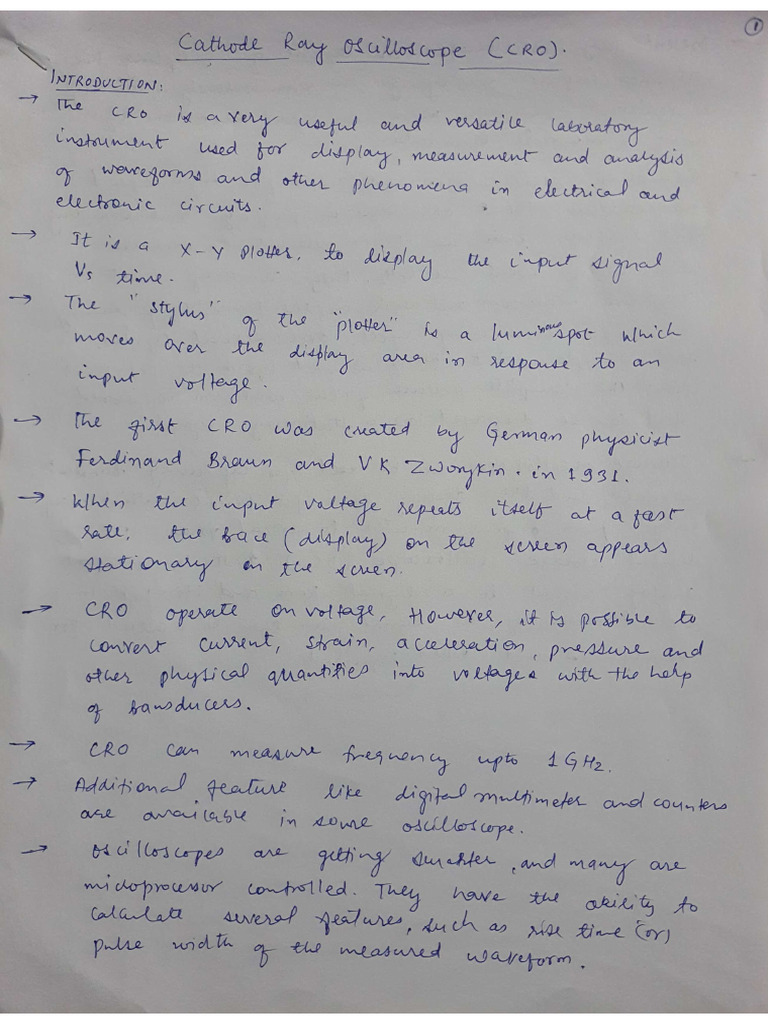 1
Cathode Ray Oscilloscope (CRO).
INTRODUCTION:
→ The CRO is a very useful and versatile laboratory
instrument used for display, measurement and analysis
of waveforms and other phenomena in electrical and
electronic circuits.
→ It is a X-Y plotter, to display the input signal
Vs time.
→ The "stylus" of the "plotter" is a luminous spot which
moves over the display area in response to an
input voltage.
→ The first CRO was created by German physicist
Ferdinand Braun and V K Zworykin. in 1931.
→ When the input voltage repeats itself at a fast
rate, the trace (display) on the screen appears
stationary on the screen.
→ CRO operate on voltage, However, it is possible to
convert current, strain, acceleration, pressure and
other physical quantities into voltages with the help
of transducers.
→ CRO can measure frequency upto 1 GHz.
→ Additional feature like digital multimeter and counters
are available in some oscilloscope.
→ Oscilloscopes are getting smarter, and many are
microprocessor controlled. They have the ability to
calculate several features, such as rise time (or)
pulse width of the measured waveform.